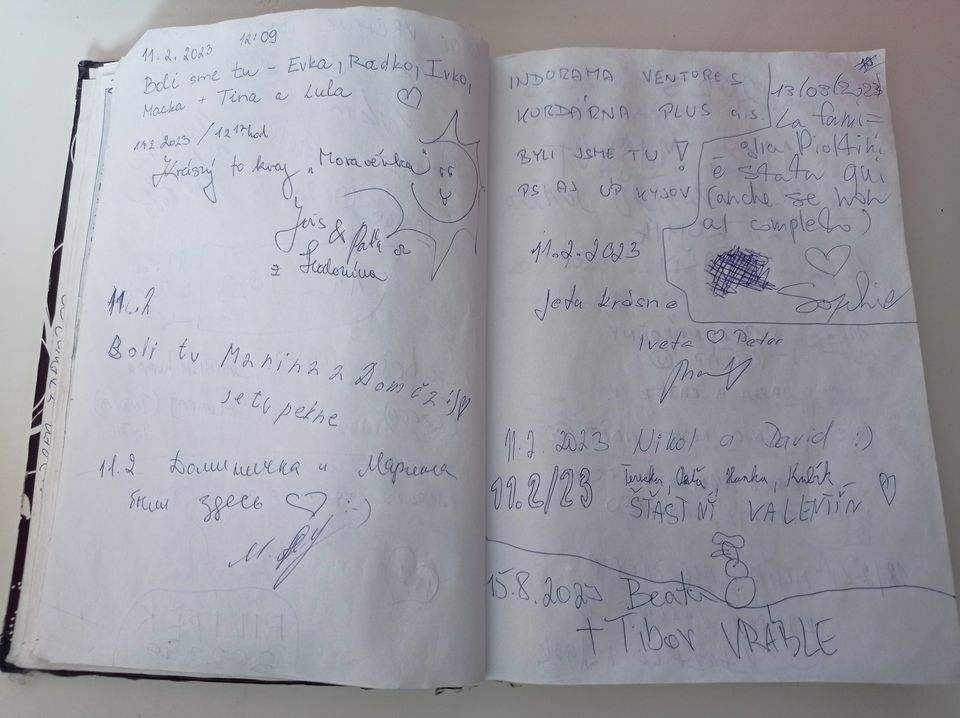 11.2.2023 12:09
Boli sme tu - Evka, Radko, Ivko,
Macka + Tina a Lula
11.2.2023 / 12 17 hod
Krásný to kraj „Moravěnka"
Iris & Paťa
z Hodonína
11.2
Boli tu Manina a Domča :)
je tu pekne
11.2 Доминичка и Марина
были здесь :-)
INDORAMA VENTURES
KORDÁRNA PLUS a.s
BYLI JSME TU!
PS: AJ ÚP KYJOV
13/08/2023
La fami=
glia Piottini
è stata qui
(anche se non
al completo)
Sophie
11.2.2023
Jeta krásne
Iveta Peter
11.2.2023 Nikol a David :)
11.2/23 Hanka, Kubík
ŠŤASTNÝ VALENTÍN
15.8.2023 Beata
+ Tibor VRABLE